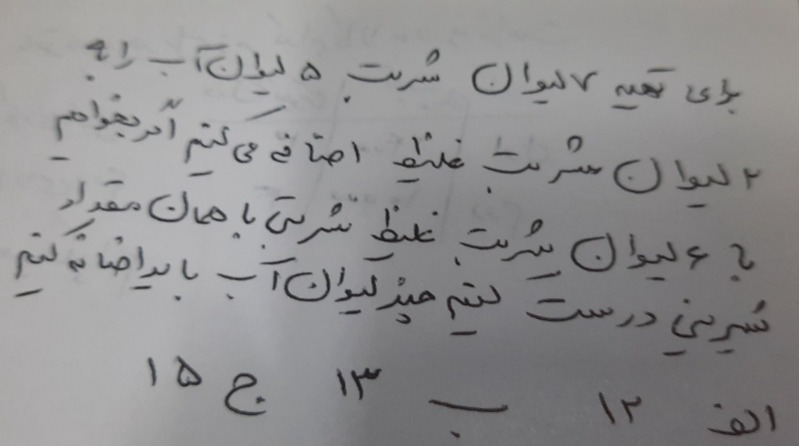 برای تهیه ۷ لیوان شربت ۵ لیوان آب را به
۲ لیوان شربت غلیظ اضافه می کنیم اگر بخواهیم
با ۶ لیوان شربت غلیظ شربتی با همان مقدار
شیرینی درست کنیم چند لیوان آب باید اضافه کنیم
الف ۱۲ ب ۱۳ ج ۱۵